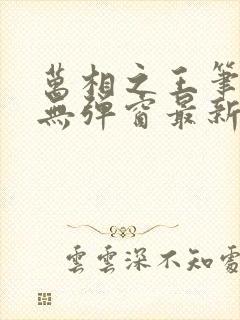 萬相之王筆
無彈窗最新
雲雲深不知處